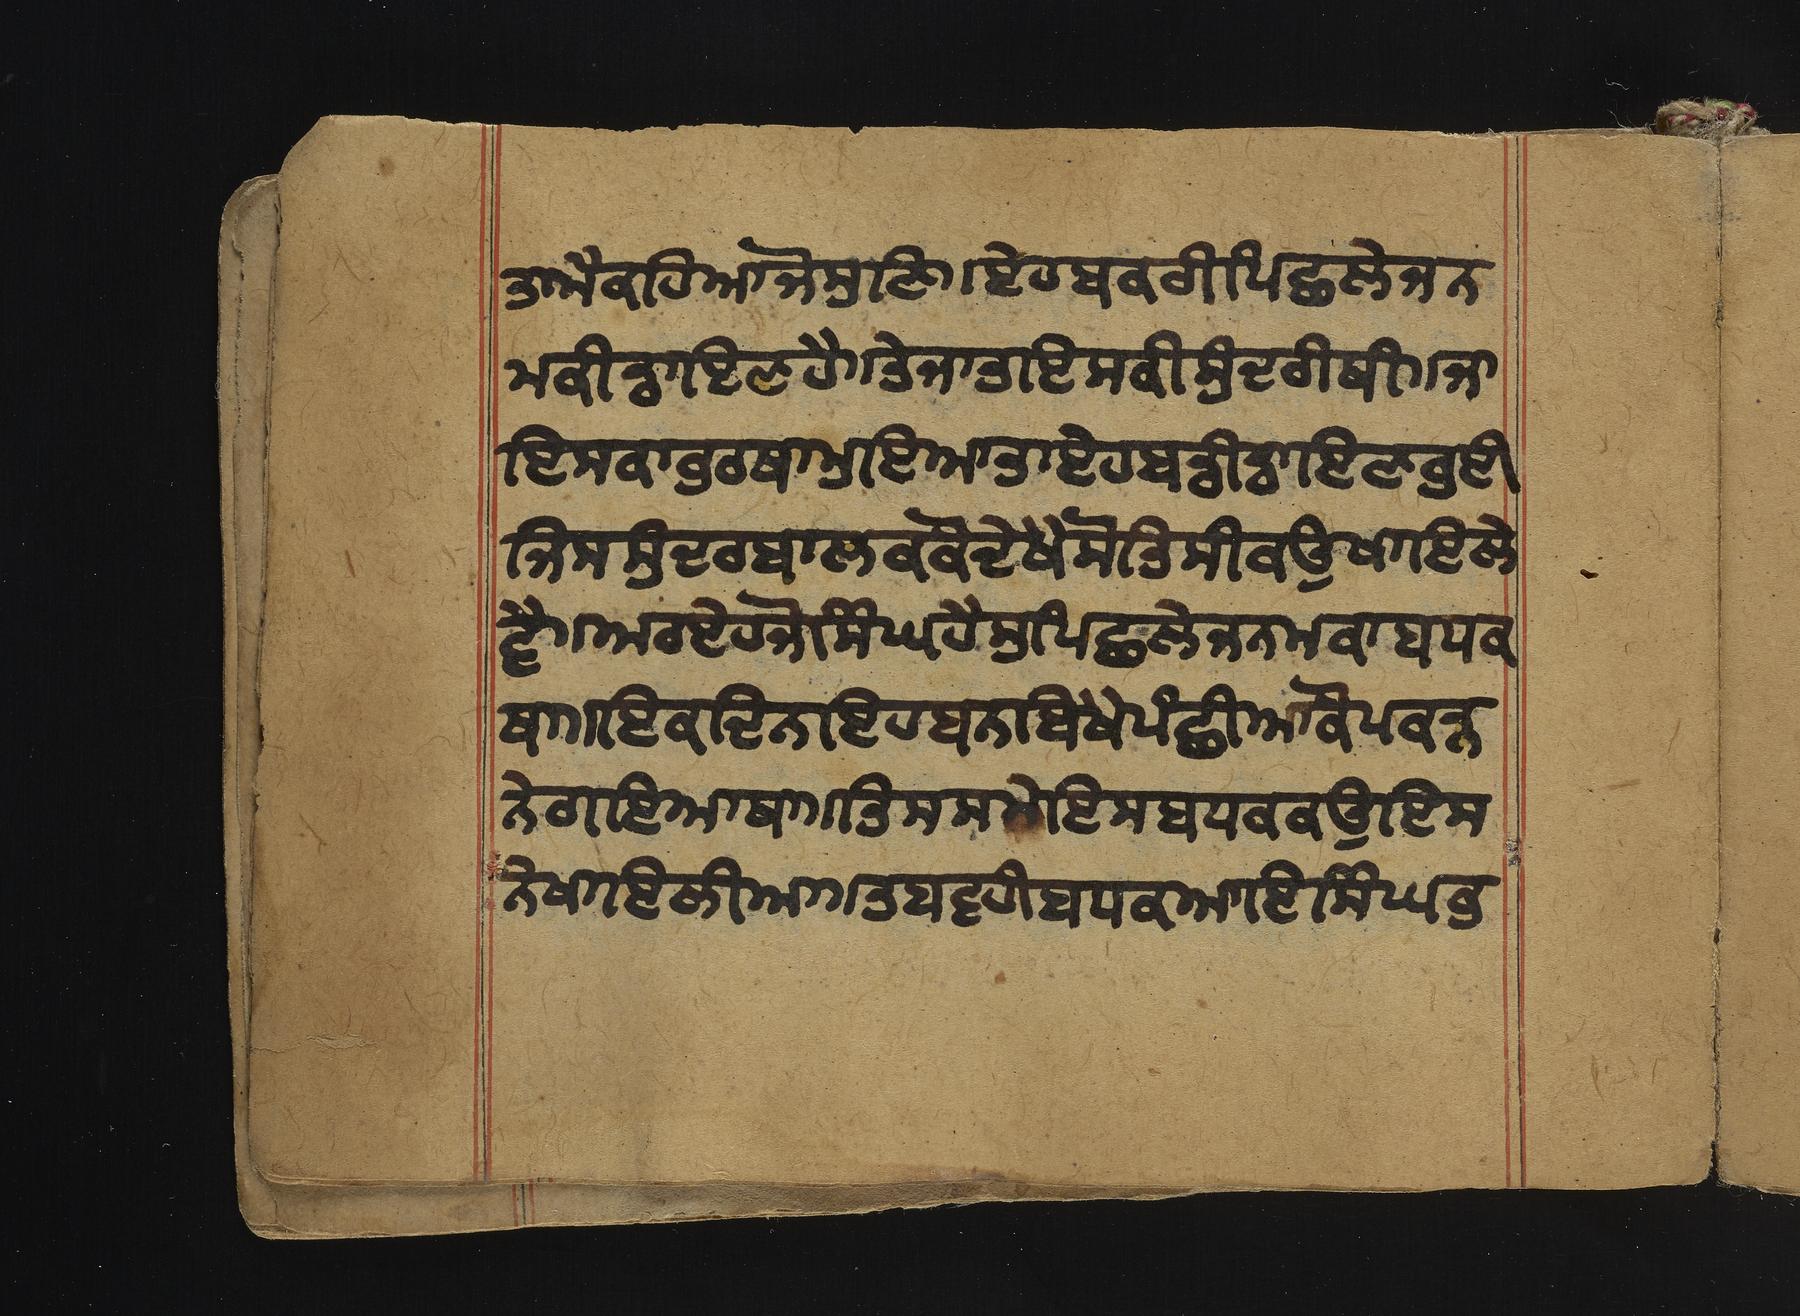 ਤਾਮੈਕਹਿਆਜੋਸੁਣਿ।ਏਹਬਕਰੀਪਿਛਲੇਜਨ
ਮਕੀਡਾਇਣਹੈ॥ਤੇਜਾਤਾਇਸਕੀਸੁੰਦਰੀਥੀ॥ਜਾ
ਇਸਕਾਕੁਰਥਾਮੁਇਆਤਾਏਹਬਡੀਡਾਇਣਹੁਈ
ਜਿਸਸੁੰਦਰਬਾਲਕਕੌਦੇਖੈਸੋਤਿਸੀਕਉਖਾਇਲੇ
ਵੈ॥ਅਰਏਹਜੋਸਿੰਘਹੈਸੁਪਿਛਲੇਜਨਮਕਾਬਧਕ
ਥਾ॥ਇਕਦਿਨਇਹਬਨਬਿਖੇਪੰਛੀਆਕੌਪਕੜ
ਨੇਗਇਆਥਾ॥ਤਿਸਸਮੇਇਸਬਧਕਕਉਇਸ
ਨੇਖਾਇਲੀਆ॥ਤਬਵਹੀਬਧਕਆਇਸਿੰਘਹੁ